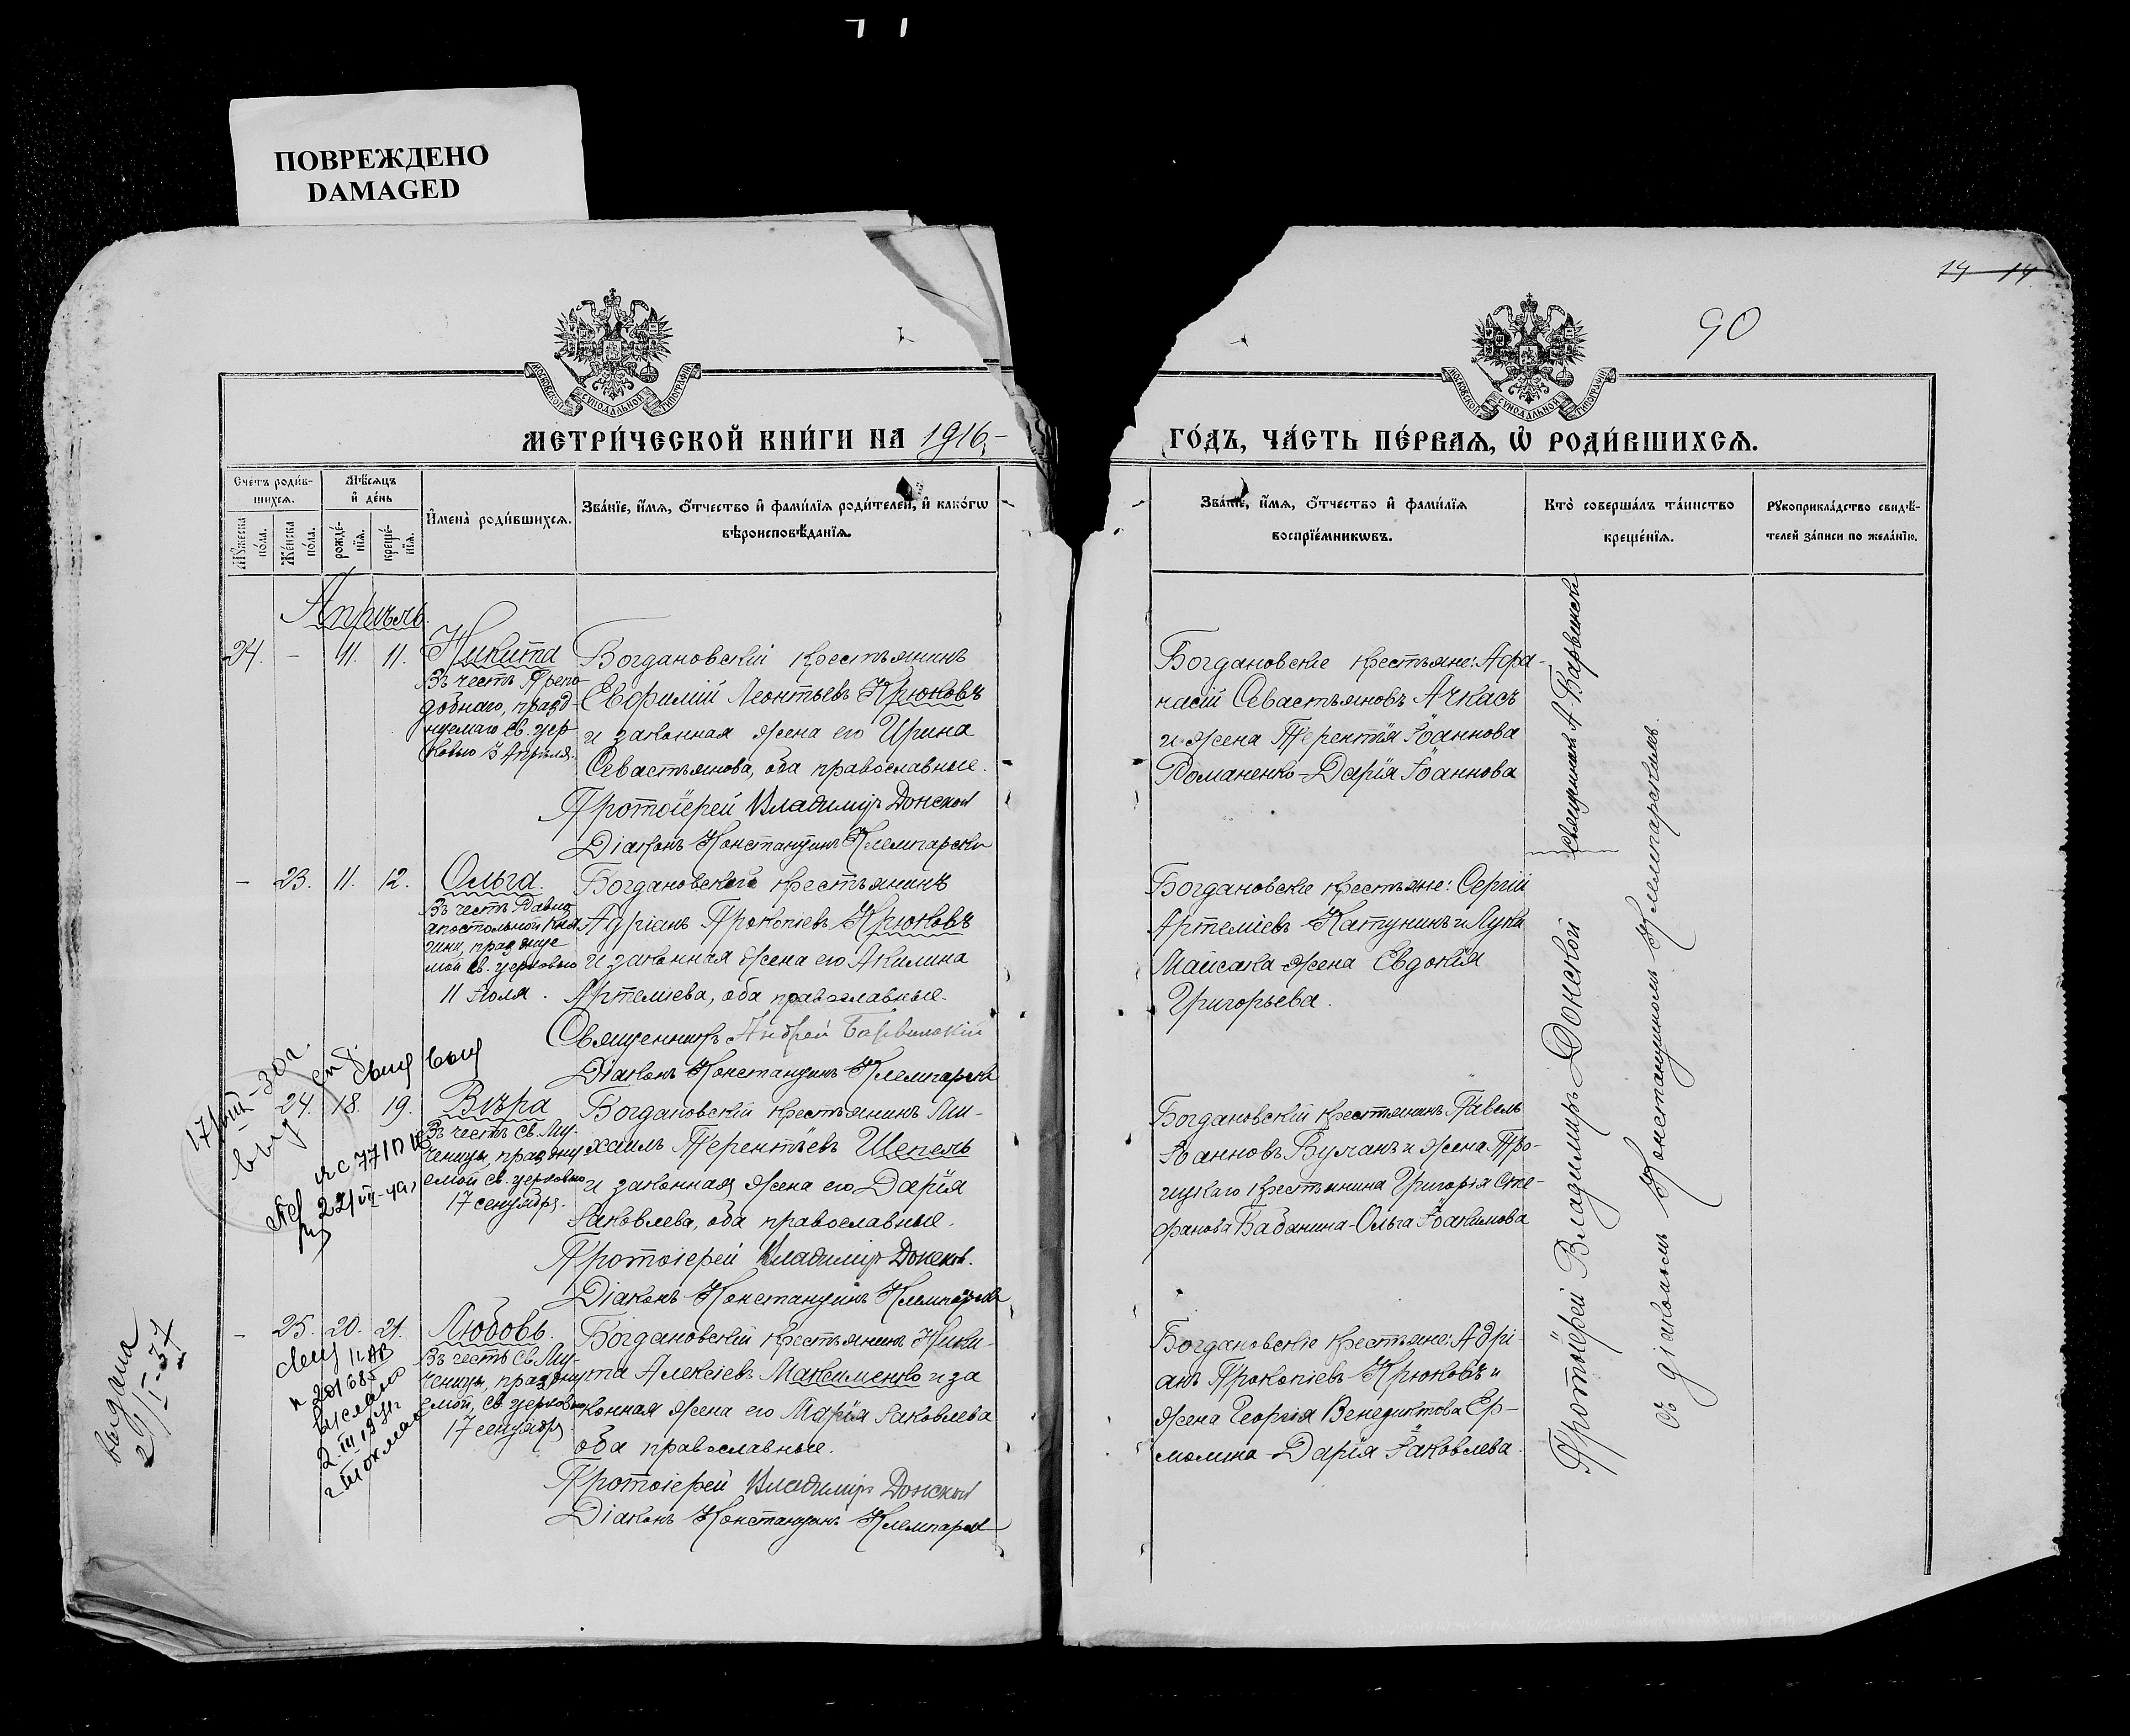 ПОВРЕЖДЕНО
DAMAGED
14 14
90
МОСКОВСКОЙ СѴНОДАЛЬНОЙ ТИПОГРАФІИ
МОСКОВСКОЙ СѴНОДАЛЬНОЙ ТИПОГРАФІИ
МЕТРИ́ЧЕСКОЙ КНИ́ГИ НА 1916
ГО́ДЪ, ЧА́СТЬ ПЕ́РВАЯ, Ѡ РОДИ́ВШИХСЯ.
Сче́тъ роди́в-
шихся.
Мѣ́сяцъ
и де́нь
Мꙋ́жеска
по́ла.
Же́нска
по́ла.
рожде́-
нїя.
креще́-
нїя.
Имена̀ роди́вшихся.
Зва́нїе, и́мя, ѻ́тчество и фами́лїя роди́телей, и како́гѡ
вѣроисповѣ́данїя.
Зва́нїе, и́мя, ѻ́тчество и фами́лїя
воспрїе́мникѡвъ.
Кто̀ соверша́лъ та́инство
креще́нїя.
Рꙋкоприкла́дство свидѣ́-
телей за́писи по жела́нїю.
Апрѣль
24. - 11. 11. Никита
Въ честь Препо
добнаго, празд-
нуемаго Св. цер
ковью 3 Апрѣля.
Богдановскій крестьянинъ
Евфимій Леонтьевъ Крюковъ
и законная жена его Ирина
Севастьянова, оба православные.
Протоіерей Владиміръ Донской
Діаконъ Константинъ Клемпарскій
Богдановскіе крестьяне: Афа-
насій Севастьяновъ Ачкасъ
и жена Терентія Іоаннова
Романенко - Дарія Іоаннова
Священникъ А. Барвинскій
- 23. 11. 12. Ольга.
Въ честь Равно
апостольной Кня
гини, праздную
мой Св. церковью
11 Іюля.
Богдановскій крестьянинъ
Адріанъ Прокопіевъ Крюковъ
и законная жена его Акилина
Артеміева, оба православные.
Священникъ Андрей Барвинскій
Діаконъ Константинъ Клемпарскій
Богдановскіе крестьяне: Сергій
Артеміевъ Катунинъ и Луки
Майсака жена Евдокія
Григорьева.
24. 18. 19. Вѣра
Въ честь Св. Му-
ченицы, праздну
емой Св. церковью
17 сентября.
Богдановскій крестьянинъ Ми-
хаилъ Терентіевъ Шепель
и законная жена его Дарія
Іаковлева, оба православные.
Протоіерей Владиміръ Донской.
Діаконъ Константинъ Клемпарскій
Богдановскій крестьянинъ Павелъ
Іоанновъ Бучанъ и жена Тро-
ицкаго крестьянина Григорія Сте-
фанова Бабанина - Ольга Іоакимова
- 25. 20. 21. Любовь.
Въ честь Св. Му-
ченицы, праздну
емой, Св. церковью
17 сентября.
Богдановскій крестьянинъ Ники-
та Алексіевъ Максименко и за
конная жена его Марія Іаковлева
оба православные.
Протоіерей Владиміръ Донской
Діаконъ Константинъ Клемпарскій
Богдановскіе крестьяне: Адрі-
анъ Прокопіевъ Крюковъ и
жена Георгія Венедиктова Ер-
молина - Дарія Іаковлева.
Протоіерей Владиміръ Донской
съ діакономъ Константиномъ Клемпарскимъ.
выслано
выдана
29/I-37